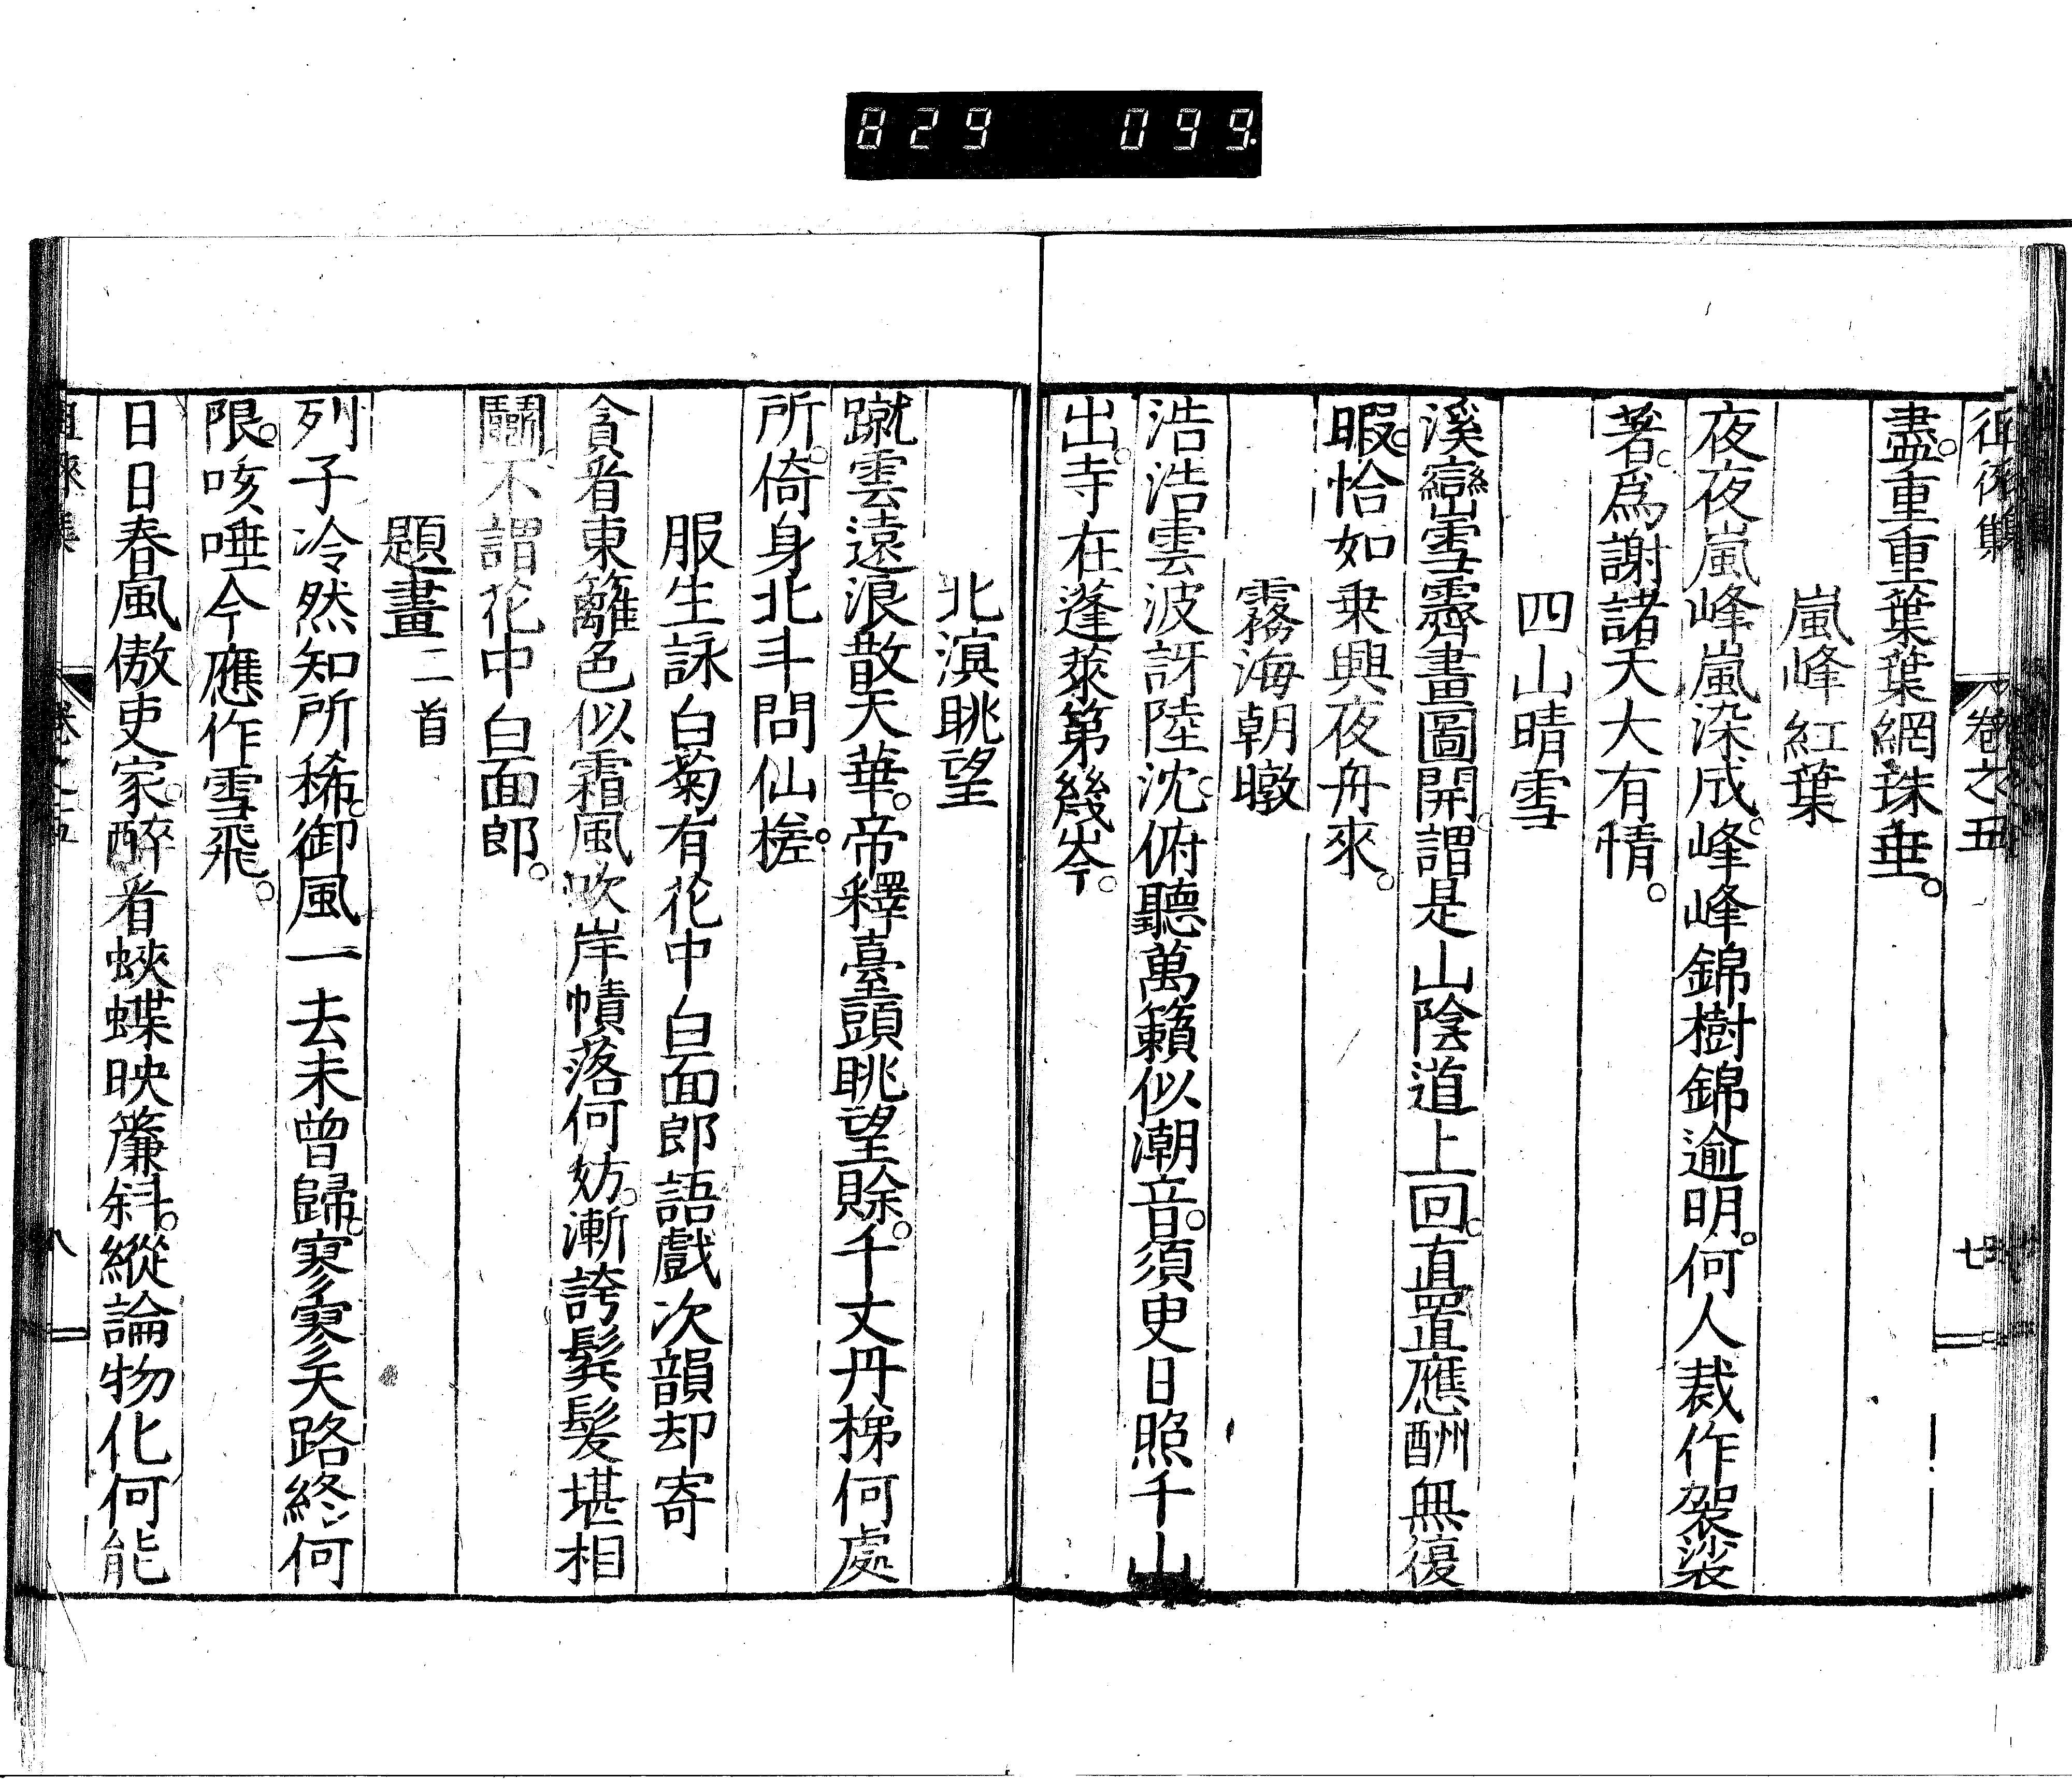 829 099.
卷之五
七
盡。重重葉葉網珠垂。
嵐峰紅葉
夜夜嵐峰嵐染成。峰峰錦樹錦逾明。何人裁作袈裟
著。爲謝諸天大有情。
四山晴雪
溪巒雪霽畫圖開。謂是山陰道上回。直置應酬無復
暇。恰如乗興夜舟來。
霧海朝暾
浩浩雲波訝陸沈。俯聽萬籟似潮音。須臾日照千山
出。寺在蓬萊第幾岑。
北溟眺望
蹴雲遠浪散天華。帝釋臺頭眺望賒。千丈丹梯何處
所。倚身北斗問仙槎。
服生詠白菊有花中白面郎語戲次韻却寄
貪看東籬色似霜。風吹岸幘落何妨。漸誇鬂髮堪相
鬭。不謂花中白面郎。
題畫二首
列子冷然知所稀。御風一去未曾歸。寥寥天路終何
限。咳唾今應作雪飛。
日日春風傲吏家。醉看蛺蝶映簾斜。縱論物化何能
八